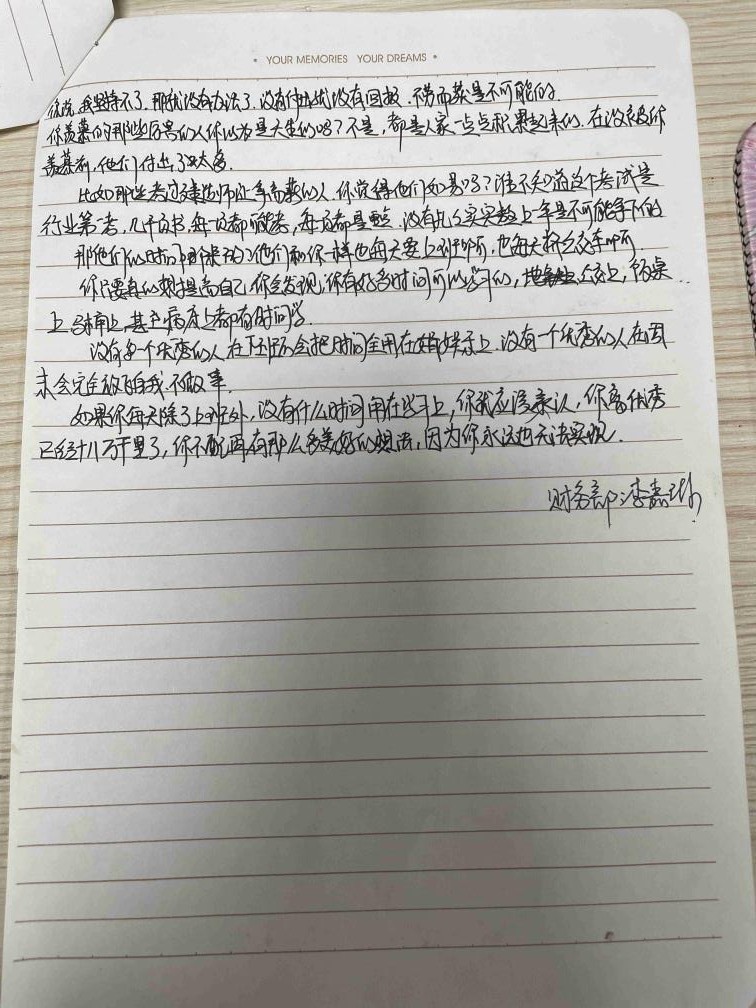 • YOUR MEMORIES YOUR DREAMS •
你说,我坚持不了,那就没有办法了,没有付出就没有回报,不劳而获是不可能的
你羡慕的那些厉害的人你以为是天生的吗?不是,都是人家一点点积累起来的,在没被你
羡慕前,他们付出了太多
比如那些考过建造师证 的人,你觉得他们容易吗?谁不知道这个考试是
行业第一考,几千页书,每一页都可能考,每一页都是重点,没有扎扎实实数上一年是不可能拿下的
那他们的时间哪来的?他们和你一样也每天要上班啊,也每天挤公交车啊,
你只要真的想提高自己,你会发现,你有好多时间可以学习的, 公交上,饭桌
上, 上,甚至病床上都有时间学
没有多一个优秀的人在下班后会把时间全用在娱乐上,没有一个优秀的人在周
末会完全放飞自我不做事,
如果你每天除了上班外,没有什么时间用在学习上,你就应该承认,你离优秀
已经十八万千里了,你不配再有那么多美好的想法,因为你永远也无法实现.
财务部:李嘉